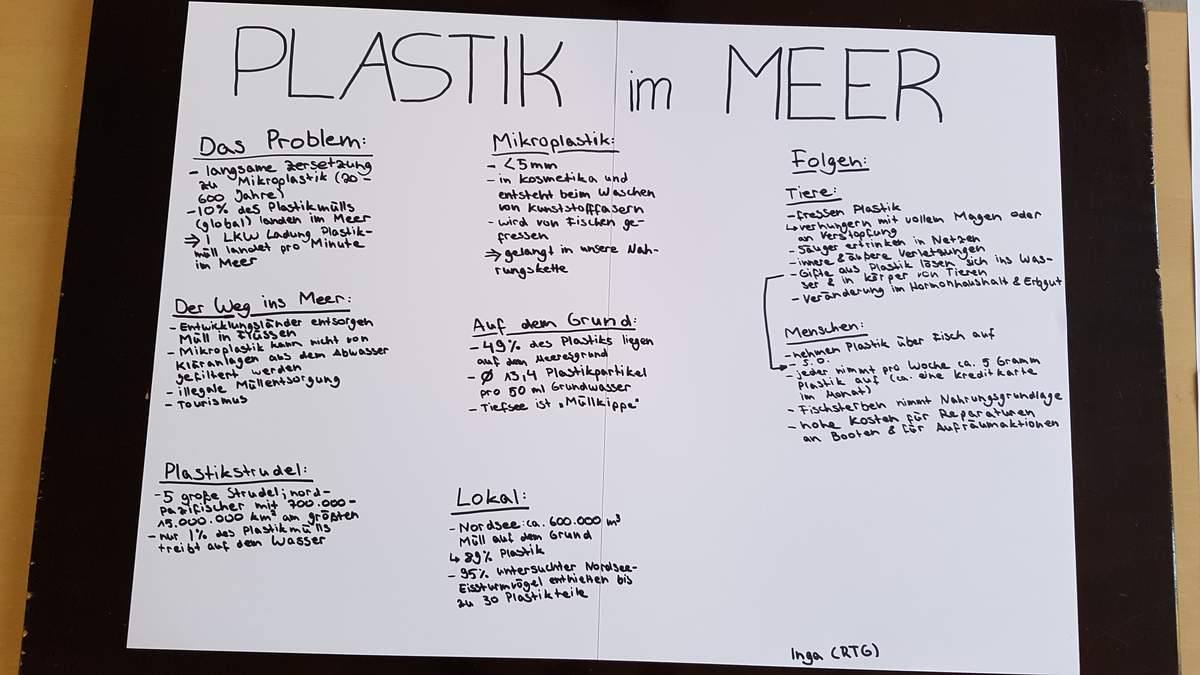 PLASTIK im MEER
Das Problem:
- langsame Zersetzung
zu Mikroplastik (20-
600 Jahre)
- 10% des Plastikmülls
(global) landen im Meer
⇒ 1 LKW Ladung Plastik-
müll landet pro Minute
im Meer
Der Weg ins Meer:
- Entwicklungsländer entsorgen
Müll in Flüssen
- Mikroplastik kann nicht von
Kläranlagen aus dem Abwasser
gefiltert werden
- illegale Müllentsorgung
- Tourismus
Plastikstrudel:
- 5 große Strudel; nord-
pazifischer mit 700.000-
15.000.000 km² am größten
- nur 1% des Plastikmülls
treibt auf dem Wasser
Mikroplastik:
- <5mm
- in Kosmetika und
entsteht beim Waschen
von Kunststoffasern
- wird von Fischen ge-
fressen
⇒ gelangt in unsere Nah-
rungskette
Auf dem Grund:
- 49% des Plastiks liegen
auf dem Meeresgrund
- Ø 13,4 Plastikpartikel
pro 50 ml Grundwasser
- Tiefsee ist „Müllkippe"
Lokal:
- Nordsee: ca. 600.000 m³
Müll auf dem Grund
↳ 89% Plastik
- 95% untersuchter Nordsee-
Eissturmvögel enthielten bis
zu 30 Plastikteile
Folgen:
Tiere:
- fressen Plastik
↳ verhungern mit vollem Magen oder
an Verstopfung
- Säuger ertrinken in Netzen
- innere & äußere Verletzungen
- Gifte aus Plastik lösen sich ins Was-
ser & in Körper von Tieren
- Veränderung im Hormonhaushalt & Erbgut
Menschen:
- nehmen Plastik über Fisch auf
- s.o.
- jeder nimmt pro Woche ca. 5 Gramm
Plastik auf (ca. eine Kreditkarte
im Monat)
- Fischsterben nimmt Nahrungsgrundlage
- hohe Kosten für Reparaturen
an Booten & für Aufräumaktionen
Inga (RTG)